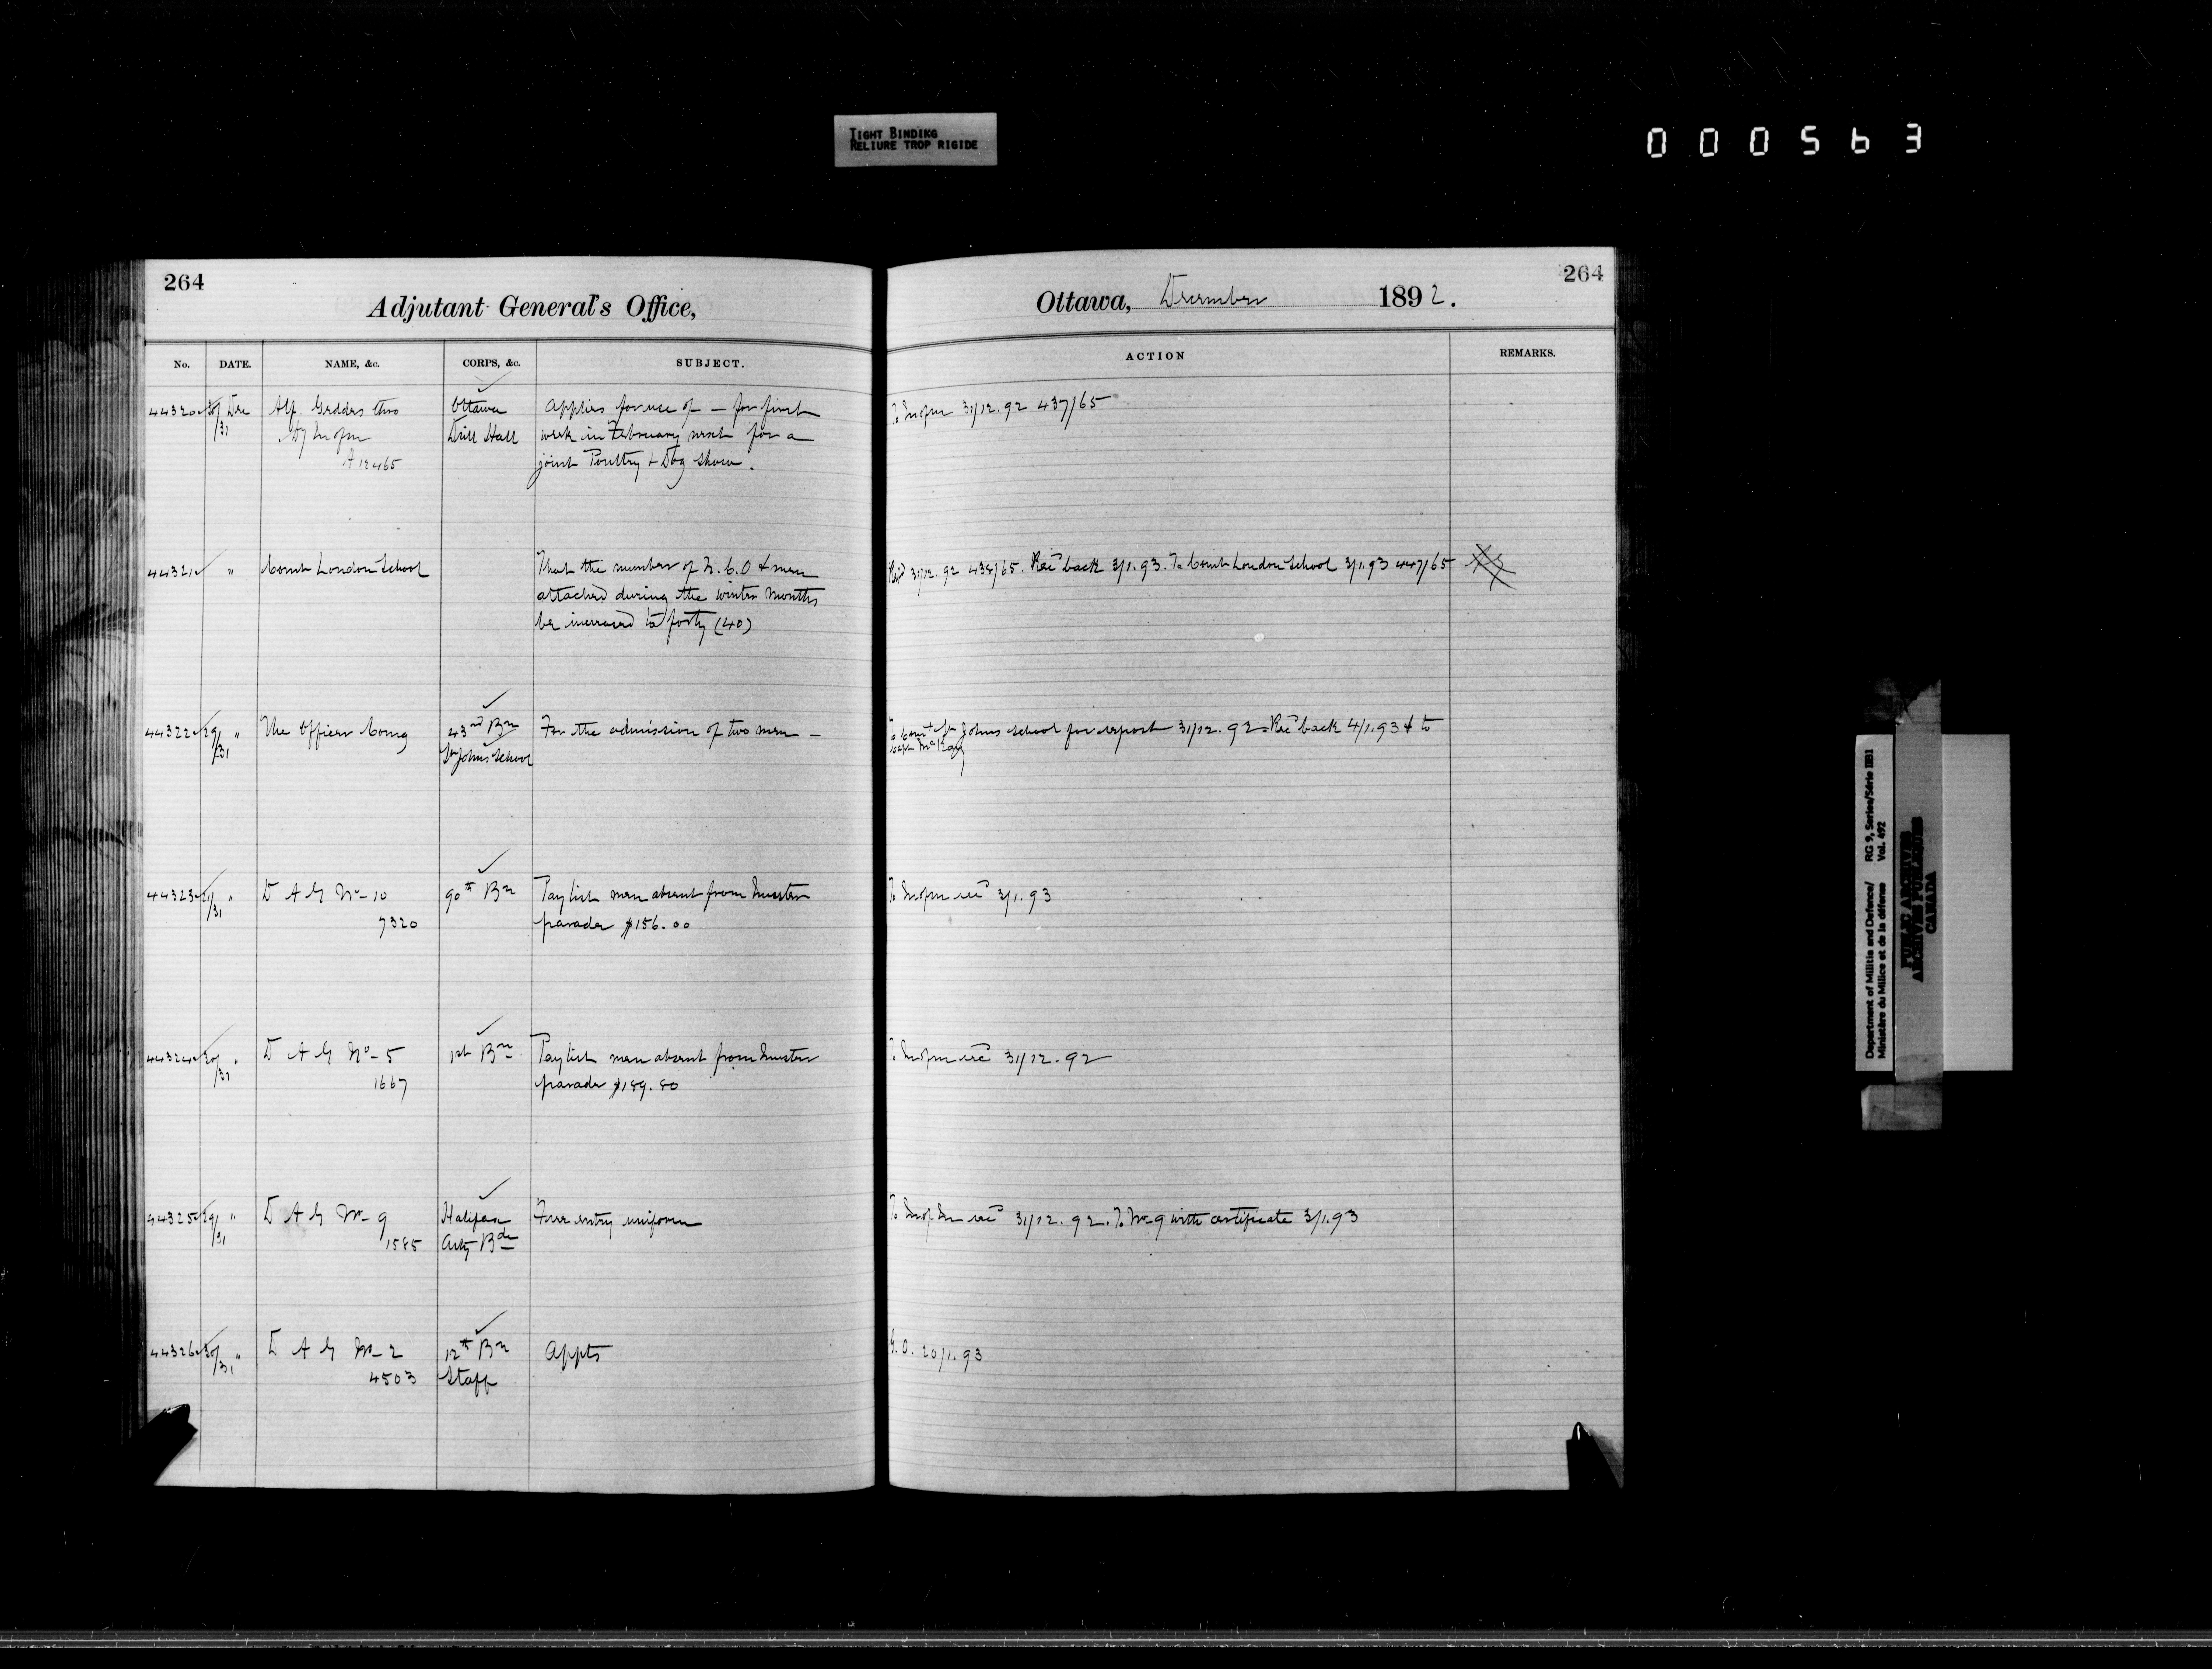 TIGHT BINDING
RELIURE TROP RIGIDE
000563
264
Adjutant General's Office,
No. DATE. NAME, &c. CORPS, &c. SUBJECT.
44320 30/31 Dec Alf. Geddes thro Ottawa Applies for use of — for first
Drill Hall week in February next for a
A 12465 joint Poultry & Dog show.
44321 " Comt London School That the number of N.C.O & men
attached during the winter months
be increased to forty (40)
44322 29/31 " The Officer Comg 43rd Bn For the admission of two men —
St Johns School
44323 21/31 " D A G No 10 90th Bn Pay list men absent from muster
7320 parades $156.00
44324 30/31 " D A G No 5 1st Bn Pay list men absent from muster
1667 parades $189.80
44325 29/31 " D A G No 9 Halifax Free entry uniform
1585 Arty Bde
44326 30/31 " D A G No 2 12th Bn Appts
4503 Staff
264
Ottawa, December 1892.
ACTION REMARKS.
31/12.92 437/65
31/12.92 438/65. Recd back 3/1.93. To Comt London School 3/1.93 447/65
To Comt St Johns School for report 31/12.92. Recd back 4/1.93 & to
Capt McKay
3/1.93
31/12.92
31/12.92. To No 9 with certificate 3/1.93
G.O. 20/1.93
Department of Militia and Defence/ RG 9, Series/Série IIB1
Ministère du Milice et de la défense Vol. 492
PUBLIC ARCHIVES
ARCHIVES PUBLIQUES
CANADA